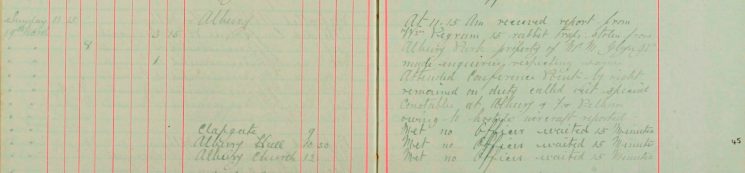 Sunday 11 25 Albury At 11.15 Am received report from
19th March 3 15 Mr Pegram, 15 rabbit traps stolen from
8 Albury Park property of Mr M. Glyn
1 made enquiries respecting same
Attended Conference Point by night
remained on duty called out special
Constables at Albury & Fur Pelham
owing to hostile aircraft reported
Clapgate 9 Met no Officer waited 15 Minutes
Albury Hall 10 30 Met no Officer waited 15 Minutes
Albury Church 12 Met no Officer waited 15 Minutes
45